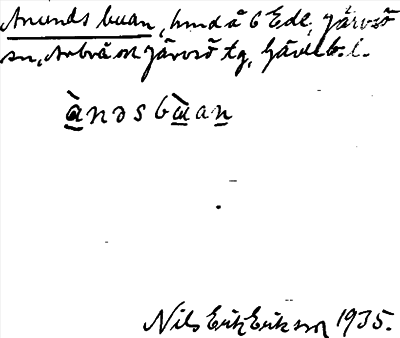 Anunds buan, hmd å 6 Ede, Järvsö
sn, Arbrå och Järvsö tg, Gävleb. l.
ànəsbùan
Nils Erik Erikson 1935.